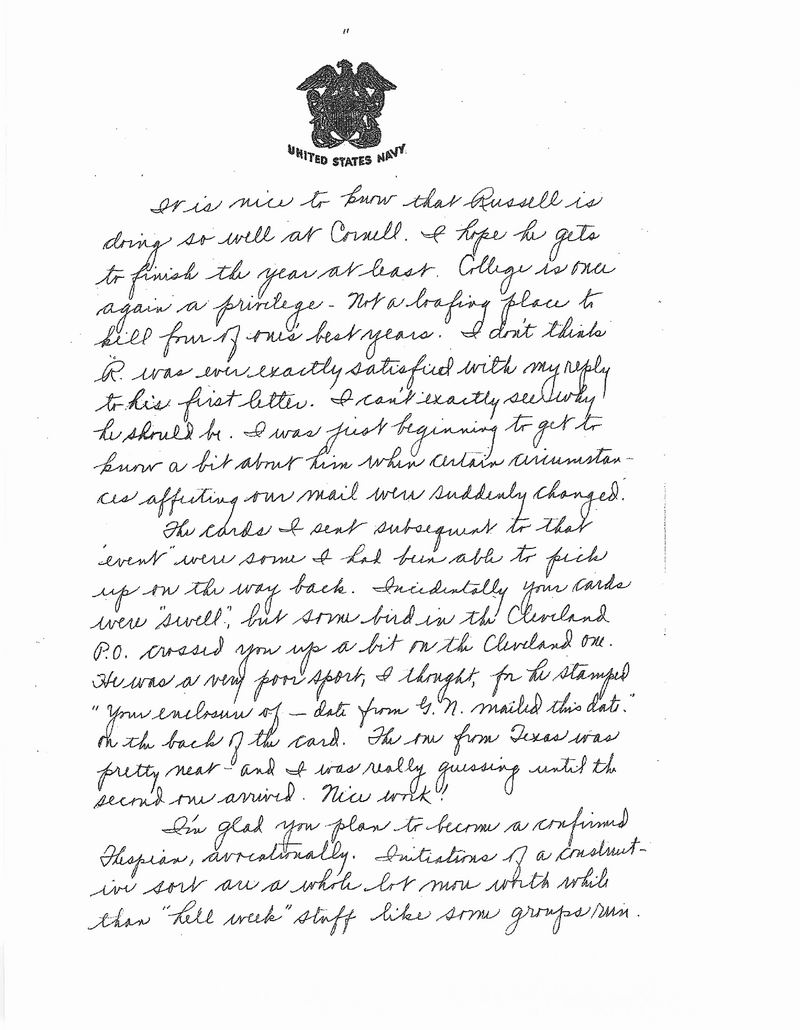 "
UNITED STATES NAVY
It is nice to know that Russell is
doing so well at Cornell. I hope he gets
to finish the year at least. College is once
again a privilege - Not a loafing place to
kill four of one's best years. I don't think
R. was ever exactly satisfied with my reply
to his first letter. I can't exactly see why
he should be. I was just beginning to get to
know a bit about him when certain circumstan-
ces affecting our mail were suddenly changed.
The cards I sent subsequent to that
"event" were some I had been able to pick
up on the way back. Incidentally your cards
were "swell", but some bird in the Cleveland
P.O. crossed you up a bit on the Cleveland one.
He was a very poor sport, I thought, for he stamped
"Your enclosure of — date from G.N. mailed this date."
on the back of the card. The one from Texas was
pretty neat - and I was really guessing until the
second one arrived. Nice work!
I'm glad you plan to become a confirmed
Thespian, avocationally. Initiations of a construct-
ive sort are a whole lot more worth while
than "hell week" stuff like some groups run.